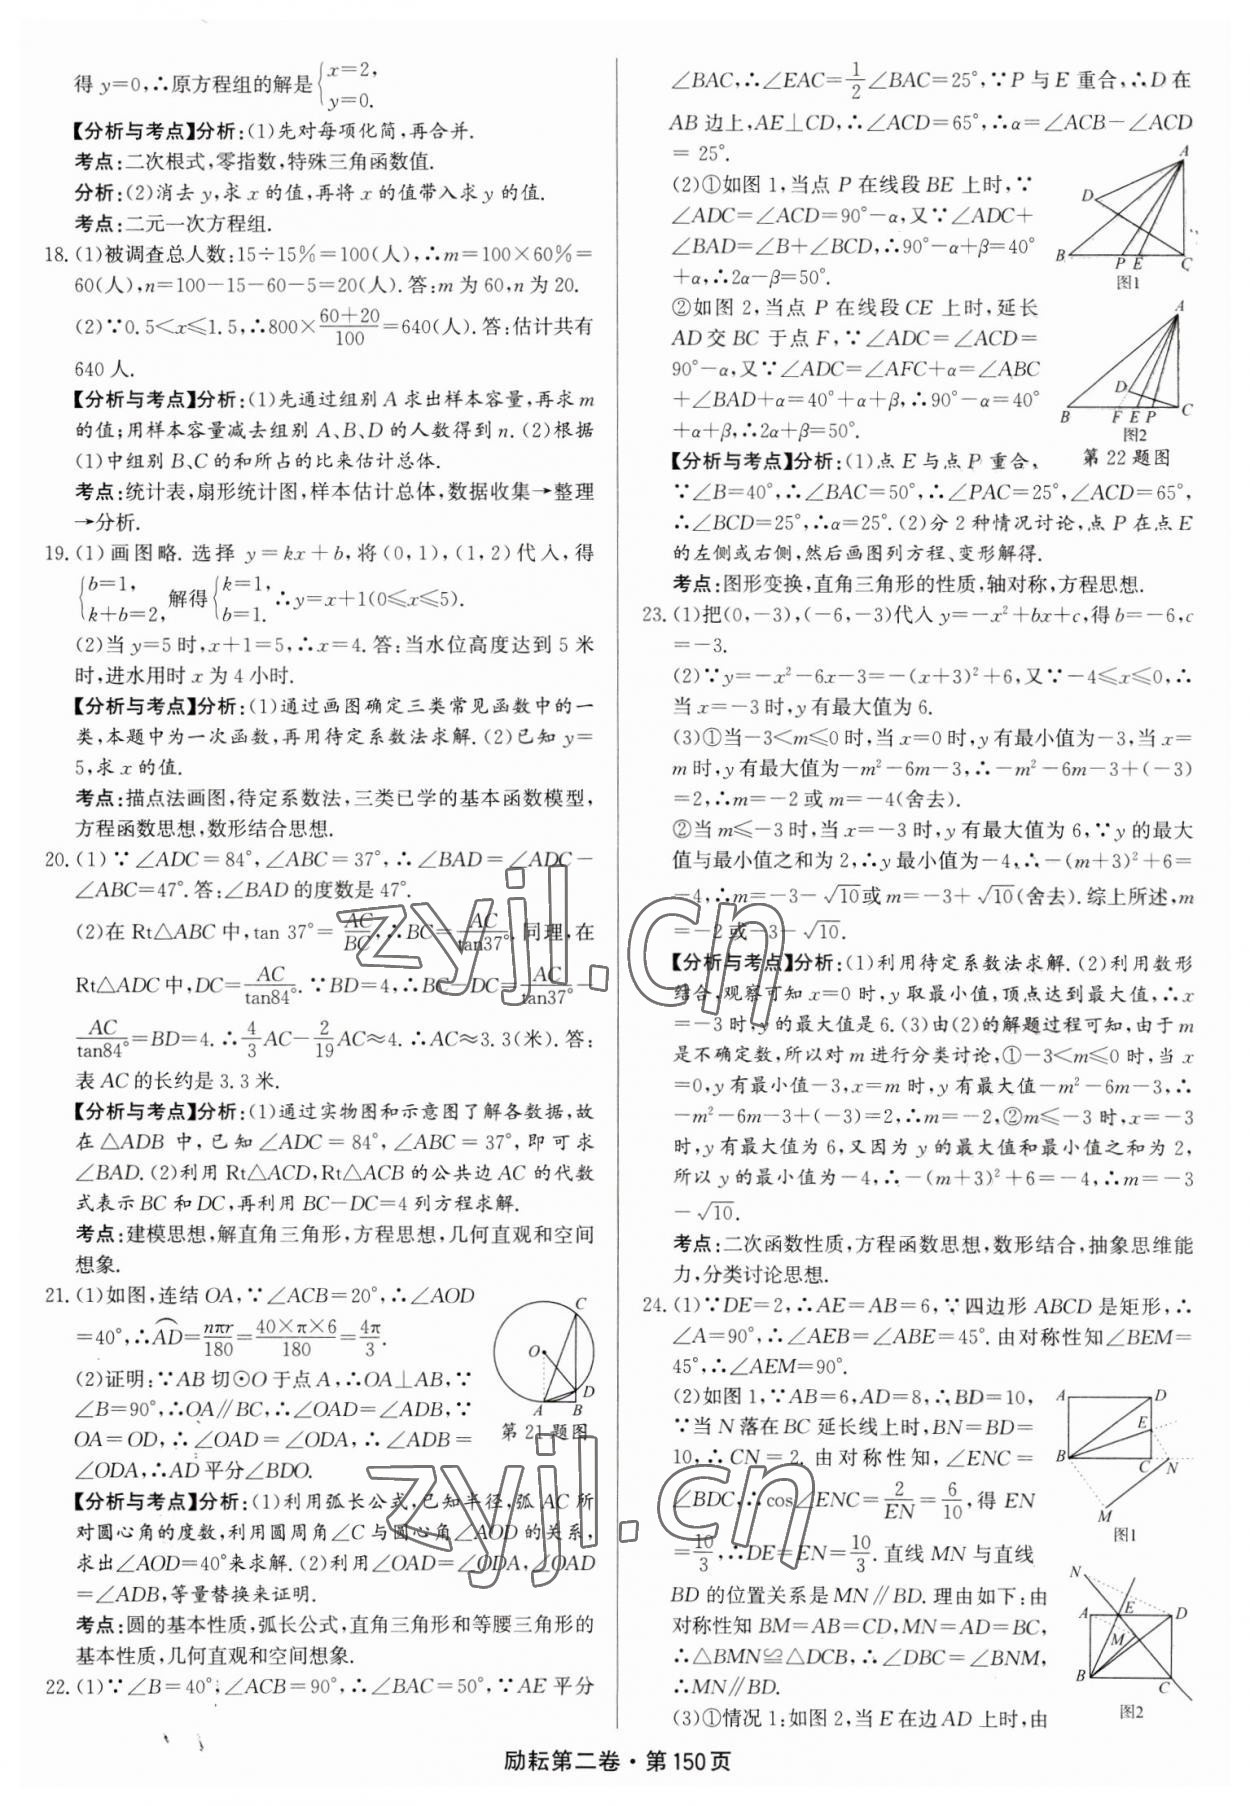 得 y=0,∴原方程组的解是{x=2, y=0.
【分析与考点】分析:(1)先对每项化简,再合并.
考点:二次根式,零指数,特殊三角函数值.
分析:(2)消去 y,求 x 的值,再将 x 的值带入求 y 的值.
考点:二元一次方程组.
18.(1)被调查总人数:15÷15%=100(人),∴m=100×60%=
60(人),n=100-15-60-5=20(人).答:m 为 60,n 为 20.
(2)∵0.5<x≤1.5,∴800×(60+20)/100=640(人).答:估计共有
640 人.
【分析与考点】分析:(1)先通过组别 A 求出样本容量,再求 m
的值;用样本容量减去组别 A、B、D 的人数得到 n.(2)根据
(1)中组别 B、C 的和所占的比来估计总体.
考点:统计表,扇形统计图,样本估计总体,数据收集→整理
→分析.
19.(1)画图略. 选择 y=kx+b,将(0,1),(1,2)代入,得
{b=1, k+b=2, 解得{k=1, b=1. ∴y=x+1(0≤x≤5).
(2)当 y=5 时,x+1=5,∴x=4.答:当水位高度达到 5 米
时,进水用时 x 为 4 小时.
【分析与考点】分析:(1)通过画图确定三类常见函数中的一
类,本题中为一次函数,再用待定系数法求解.(2)已知 y=
5,求 x 的值.
考点:描点法画图,待定系数法,三类已学的基本函数模型,
方程函数思想,数形结合思想.
20.(1)∵∠ADC=84°,∠ABC=37°,∴∠BAD=∠ADC-
∠ABC=47°.答:∠BAD 的度数是 47°.
(2)在 Rt△ABC 中,tan 37°=AC/BC,∴BC=AC/tan37°.同理,在
Rt△ADC 中,DC=AC/tan84°.∵BD=4,∴BC-DC=AC/tan37°-
AC/tan84°=BD=4.∴4/3AC-2/19AC≈4.∴AC≈3.3(米).答:
表 AC 的长约是 3.3 米.
【分析与考点】分析:(1)通过实物图和示意图了解各数据,故
在△ADB 中,已知∠ADC=84°,∠ABC=37°,即可求
∠BAD.(2)利用 Rt△ACD,Rt△ACB 的公共边 AC 的代数
式表示 BC 和 DC,再利用 BC-DC=4 列方程求解.
考点:建模思想,解直角三角形,方程思想,几何直观和空间
想象.
21.(1)如图,连结 OA,∵∠ACB=20°,∴∠AOD
=40°,∴⌒AD=nπr/180=40×π×6/180=4π/3.
(2)证明:∵AB 切⊙O 于点 A,∴OA⊥AB,∵
∠B=90°,∴OA∥BC,∴∠OAD=∠ADB,∵
OA=OD,∴∠OAD=∠ODA,∴∠ADB=
∠ODA,∴AD 平分∠BDO.
C
O
D
A B
第 21 题图
【分析与考点】分析:(1)利用弧长公式,已知半径,弧 AC 所
对圆心角的度数,利用圆周角∠C 与圆心角∠AOD 的关系,
求出∠AOD=40°来求解.(2)利用∠OAD=∠ODA,∠OAD
=∠ADB,等量替换来证明.
考点:圆的基本性质,弧长公式,直角三角形和等腰三角形的
基本性质,几何直观和空间想象.
22.(1)∵∠B=40°,∠ACB=90°,∴∠BAC=50°,∵AE 平分
∠BAC,∴∠EAC=1/2∠BAC=25°,∵P 与 E 重合,∴D 在
AB 边上,AE⊥CD,∴∠ACD=65°,∴α=∠ACB-∠ACD
=25°.
(2)①如图 1,当点 P 在线段 BE 上时,∵
∠ADC=∠ACD=90°-α,又∵∠ADC+
∠BAD=∠B+∠BCD,∴90°-α+β=40°
+α,∴2α-β=50°.
A
D
B P E C
图1
②如图 2,当点 P 在线段 CE 上时,延长
AD 交 BC 于点 F,∵∠ADC=∠ACD=
90°-α,又∵∠ADC=∠AFC+α=∠ABC
+∠BAD+α=40°+α+β,∴90°-α=40°
+α+β,∴2α+β=50°.
A
D
B F E P C
图2
第 22 题图
【分析与考点】分析:(1)点 E 与点 P 重合,
∵∠B=40°,∴∠BAC=50°,∴∠PAC=25°,∠ACD=65°,
∴∠BCD=25°,∴α=25°.(2)分 2 种情况讨论,点 P 在点 E
的左侧或右侧,然后画图列方程、变形解得.
考点:图形变换,直角三角形的性质,轴对称,方程思想.
23.(1)把(0,-3),(-6,-3)代入 y=-x²+bx+c,得 b=-6,c
=-3.
(2)∵y=-x²-6x-3=-(x+3)²+6,又∵-4≤x≤0,∴
当 x=-3 时,y 有最大值为 6.
(3)①当-3<m≤0 时,当 x=0 时,y 有最小值为-3,当 x=
m 时,y 有最大值为-m²-6m-3,∴-m²-6m-3+(-3)
=2,∴m=-2 或 m=-4(舍去).
②当 m≤-3 时,当 x=-3 时,y 有最大值为 6,∵y 的最大
值与最小值之和为 2,∴y 最小值为-4,∴-(m+3)²+6=
-4,∴m=-3-√10或 m=-3+√10(舍去).综上所述,m
=-2 或-3-√10.
【分析与考点】分析:(1)利用待定系数法求解.(2)利用数形
结合,观察可知 x=0 时,y 取最小值,顶点达到最大值,∴x
=-3 时,y 的最大值是 6.(3)由(2)的解题过程可知,由于 m
是不确定数,所以对 m 进行分类讨论,①-3<m≤0 时,当 x
=0,y 有最小值-3,x=m 时,y 有最大值-m²-6m-3,∴
-m²-6m-3+(-3)=2,∴m=-2,②m≤-3 时,x=-3
时,y 有最大值为 6,又因为 y 的最大值和最小值之和为 2,
所以 y 的最小值为-4,∴-(m+3)²+6=-4,∴m=-3
-√10.
考点:二次函数性质,方程函数思想,数形结合,抽象思维能
力,分类讨论思想.
24.(1)∵DE=2,∴AE=AB=6,∵四边形 ABCD 是矩形,∴
∠A=90°,∴∠AEB=∠ABE=45°.由对称性知∠BEM=
45°,∴∠AEM=90°.
(2)如图 1,∵AB=6,AD=8,∴BD=10,
∵当 N 落在 BC 延长线上时,BN=BD=
10,∴CN=2. 由对称性知,∠ENC=
∠BDC,∴cos∠ENC=2/EN=6/10,得 EN
=10/3,∴DE=EN=10/3.直线 MN 与直线
BD 的位置关系是 MN∥BD.理由如下:由
对称性知 BM=AB=CD,MN=AD=BC,
∴△BMN≌△DCB,∴∠DBC=∠BNM,
∴MN∥BD.
A D
E
B C N
M
图1
N
A E D
M
B C
图2
(3)①情况 1:如图 2,当 E 在边 AD 上时,由
zyjl.cn
zyjl.cn
励耘第二卷·第 150 页